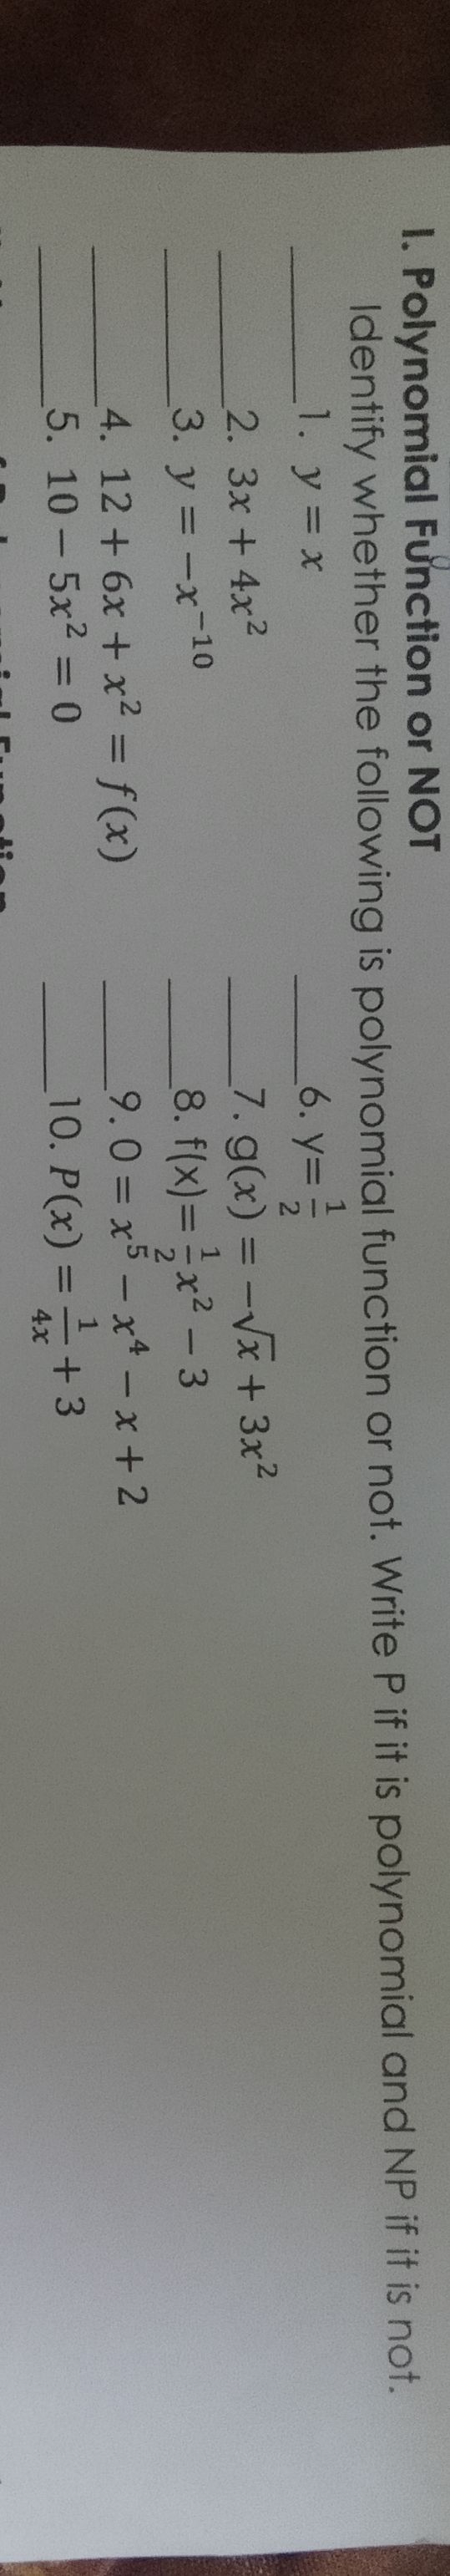 I. Polynomial Function or NOT
Identify whether the following is polynomial function or not. Write P if it is polynomial and NP if it is not.
______1. y = x
______2. 3x + 4x²
______3. y = −x⁻¹⁰
______4. 12 + 6x + x² = f(x)
______5. 10 − 5x² = 0
____6. y= 1/2
____7. g(x) = −√x + 3x²
____8. f(x)= 1/2 x² − 3
____9. 0 = x⁵ − x⁴ − x + 2
____10. P(x) = 1/4x + 3